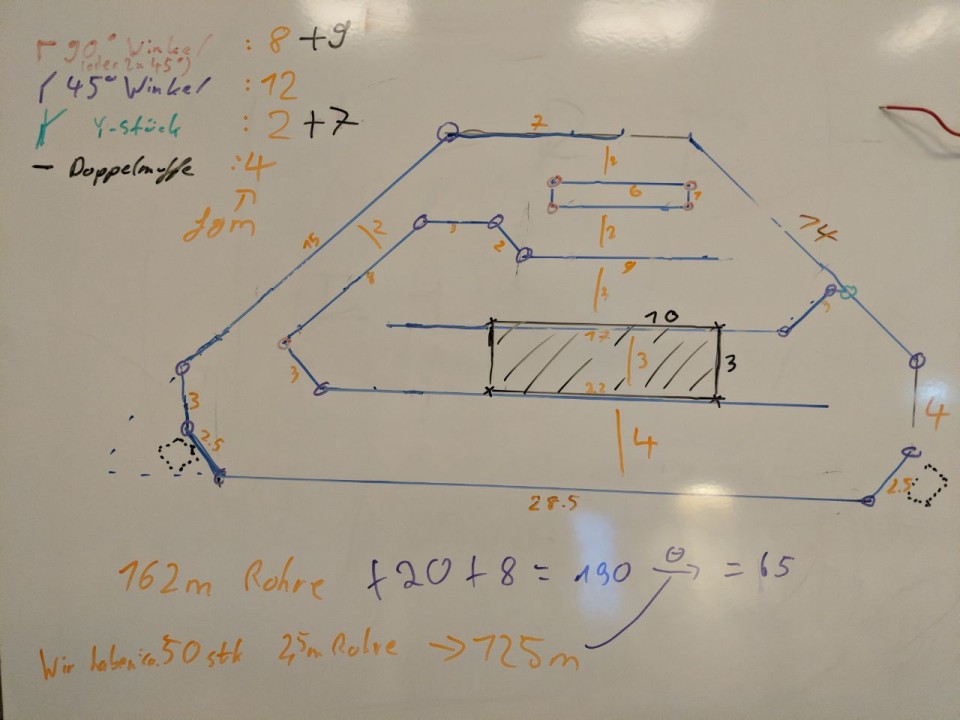 90° Winkel : 8 +9
(oder 2x 45°)
45° Winkel : 12
Y-stück : 2 +7
Doppelmuffe : 4
7
2
6
1
2
9
3
15
2
3
2
8
14
3
10
17
3
3
22
3
3
2.5
4
4
2.5
28.5
162m Rohre +20 +8 = 190 → = 65
Wir haben ca. 50 stk 2,5m Rohre → 125m